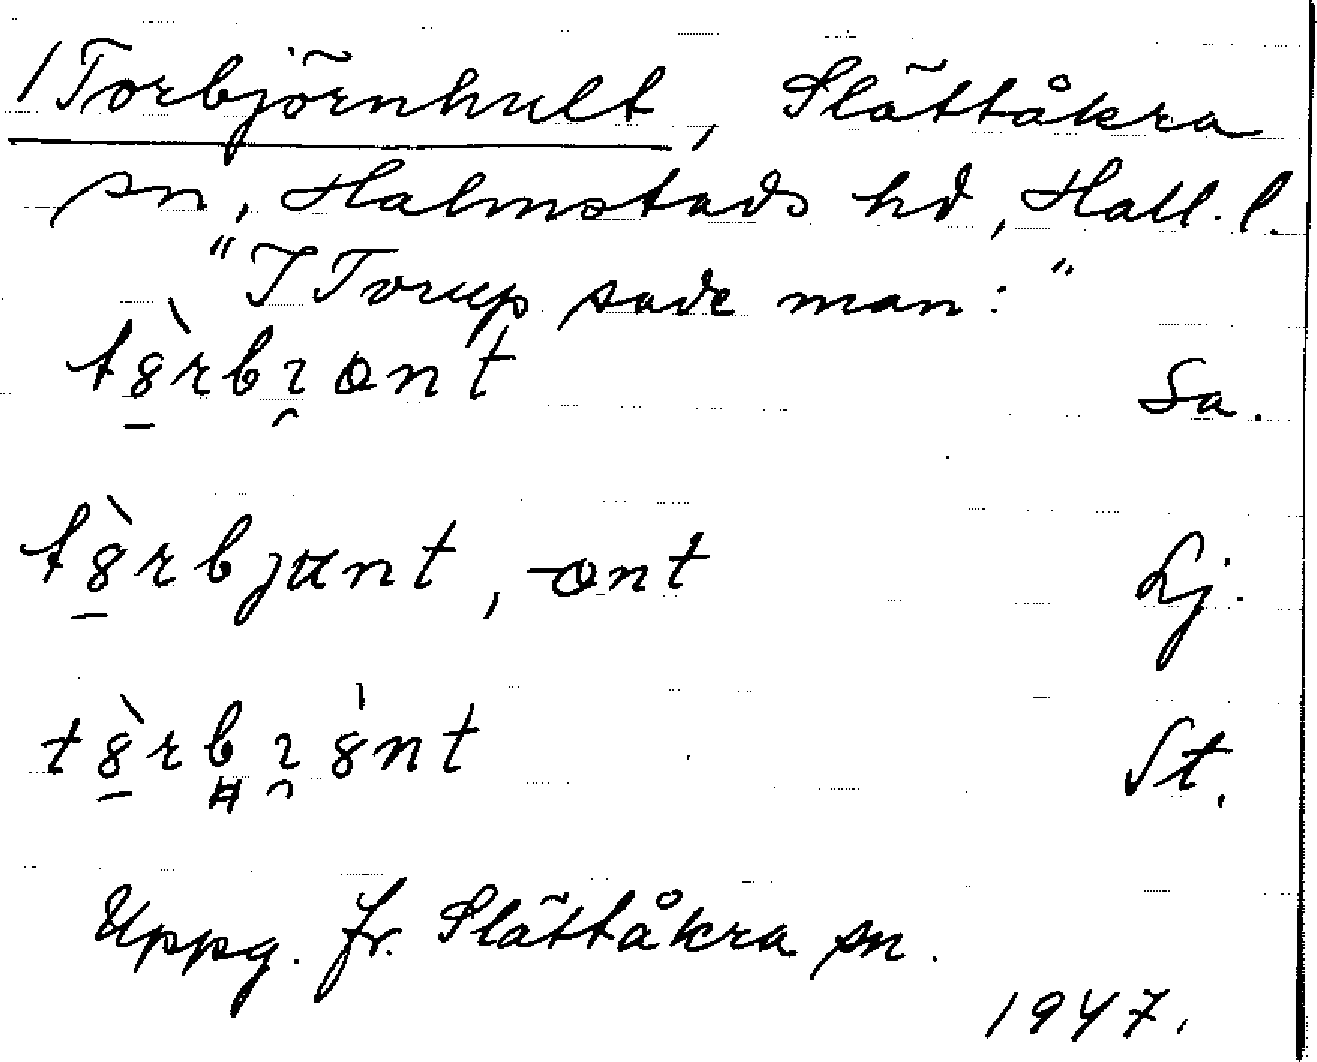 /Torbjörnhult, Slättåkra
sn, Halmstads hd, Hall. l.
"I Torup sade man:"
Sa.
-ont Lj.
St.
Uppg. fr. Slättåkra sn.
1947.